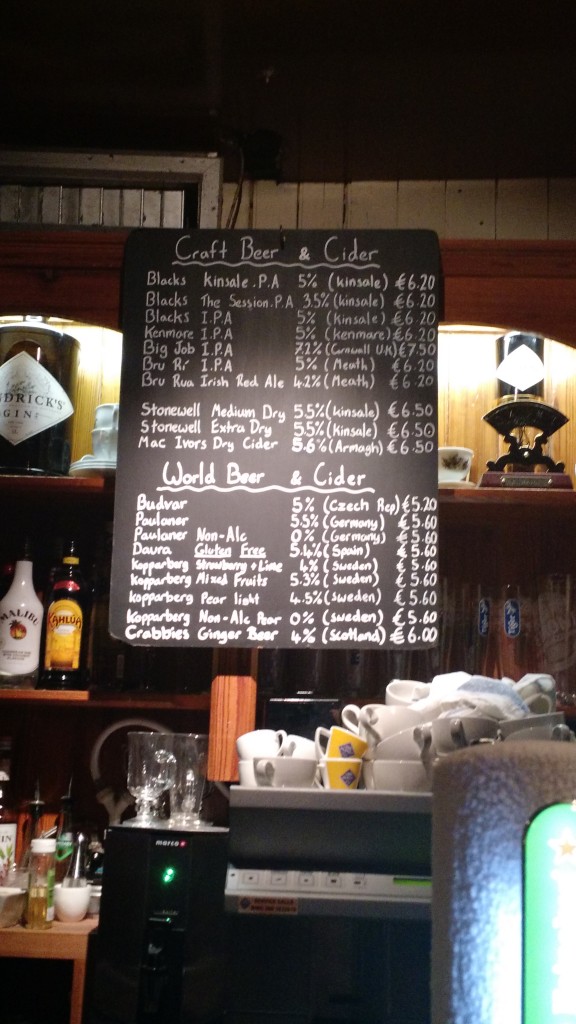 Craft Beer & Cider
Blacks Kinsale.P.A 5% (kinsale) €6.20
Blacks The Session.P.A 3.5% (kinsale) €6.20
Blacks I.P.A 5% (Kinsale) €6.20
Kenmare I.P.A 5% (kenmare) €6.20
Big Job I.P.A 7.2% (Cornwall UK) €7.50
Bru Rí I.P.A 5% (Meath) €6.20
Bru Rua Irish Red Ale 4.2% (Meath) €6.20
Stonewell Medium Dry 5.5% (kinsale) €6.50
Stonewell Extra Dry 5.5% (Kinsale) €6.50
Mac Ivors Dry Cider 5.6% (Armagh) €6.50
World Beer & Cider
Budvar 5% (Czech Rep) €5.20
Paulaner 5.5% (Germany) €5.60
Paulaner Non-Alc 0% (Germany) €5.60
Daura Gluten Free 5.4% (Spain) €5.60
Kopparberg Strawberry + Lime 4% (Sweden) €5.60
Kopparberg Mixed Fruits 5.3% (Sweden) €5.60
Kopparberg Pear light 4.5% (Sweden) €5.60
Kopparberg Non-Alc Pear 0% (sweden) €5.60
Crabbies Ginger Beer 4% (Scotland) €6.00
NDRICK'S
GIN
MALIBU
KAHLUA
marco